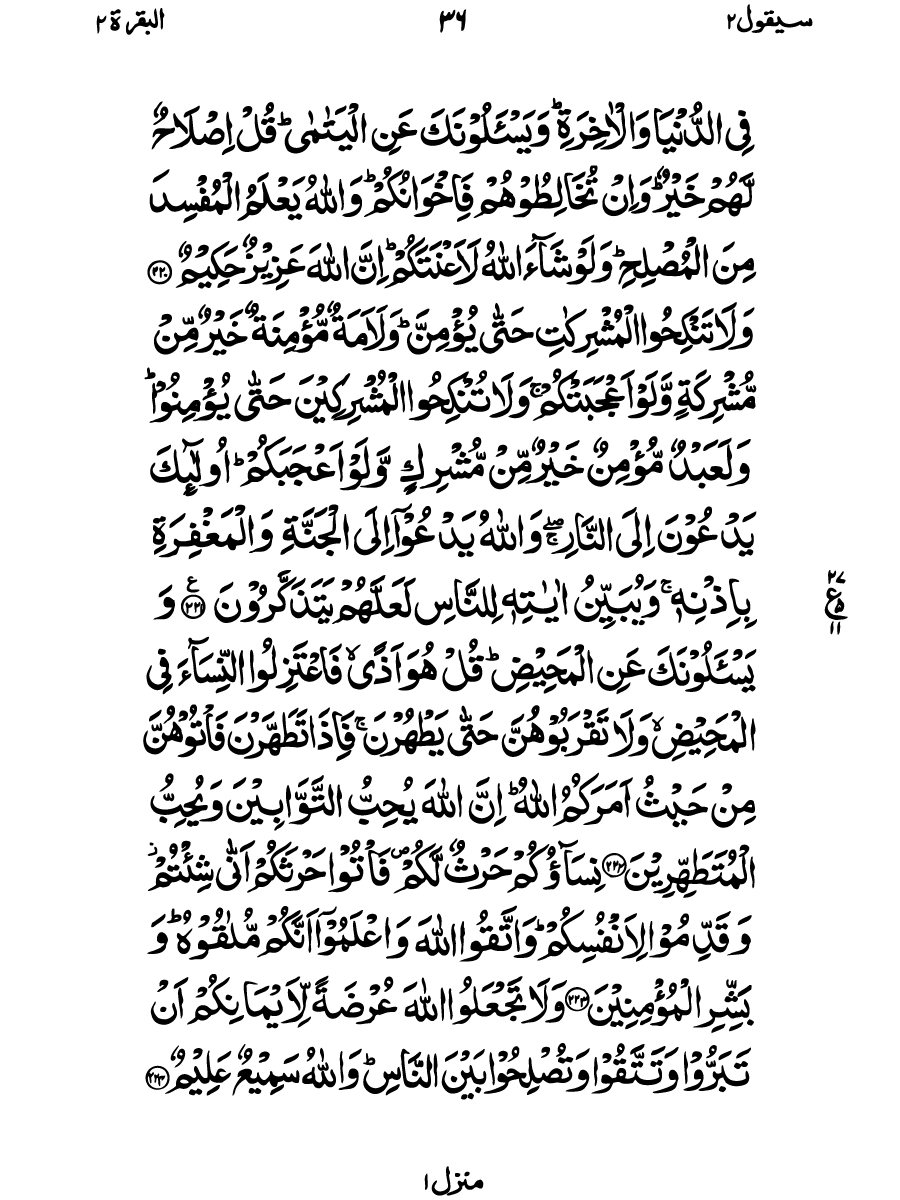 سيقول٢ ٣٦ البقرة ٢
فِي الدُّنْيَا وَالْاٰخِرَةِ ؕ وَيَسْـَٔلُوْنَكَ عَنِ الْيَتٰمٰى ؕ قُلْ اِصْلَاحٌ
لَّهُمْ خَيْرٌ ؕ وَاِنْ تُخَالِطُوْهُمْ فَاِخْوَانُكُمْ ؕ وَاللّٰهُ يَعْلَمُ الْمُفْسِدَ
مِنَ الْمُصْلِحِ ؕ وَلَوْ شَآءَ اللّٰهُ لَاَعْنَتَكُمْ ؕ اِنَّ اللّٰهَ عَزِيْزٌ حَكِيْمٌ ﴿۲۲۰﴾
وَلَا تَنْكِحُوا الْمُشْرِكٰتِ حَتّٰى يُؤْمِنَّ ؕ وَلَاَمَةٌ مُّؤْمِنَةٌ خَيْرٌ مِّنْ
مُّشْرِكَةٍ وَّلَوْ اَعْجَبَتْكُمْ ۚ وَلَا تُنْكِحُوا الْمُشْرِكِيْنَ حَتّٰى يُؤْمِنُوْا ؕ
وَلَعَبْدٌ مُّؤْمِنٌ خَيْرٌ مِّنْ مُّشْرِكٍ وَّلَوْ اَعْجَبَكُمْ ؕ اُولٰٓئِكَ
يَدْعُوْنَ اِلَى النَّارِ ۖۚ وَاللّٰهُ يَدْعُوْٓا اِلَى الْجَنَّةِ وَالْمَغْفِرَةِ
بِاِذْنِهٖ ۚ وَيُبَيِّنُ اٰيٰتِهٖ لِلنَّاسِ لَعَلَّهُمْ يَتَذَكَّرُوْنَ ﴿۲۲۱﴾ ع وَ
٢٧ ع ٥ ١١
يَسْـَٔلُوْنَكَ عَنِ الْمَحِيْضِ ؕ قُلْ هُوَ اَذًى ۙ فَاعْتَزِلُوا النِّسَآءَ فِي
الْمَحِيْضِ ۙ وَلَا تَقْرَبُوْهُنَّ حَتّٰى يَطْهُرْنَ ۚ فَاِذَا تَطَهَّرْنَ فَاْتُوْهُنَّ
مِنْ حَيْثُ اَمَرَكُمُ اللّٰهُ ؕ اِنَّ اللّٰهَ يُحِبُّ التَّوَّابِيْنَ وَيُحِبُّ
الْمُتَطَهِّرِيْنَ ﴿۲۲۲﴾ نِسَآؤُكُمْ حَرْثٌ لَّكُمْ ۪ فَاْتُوْا حَرْثَكُمْ اَنّٰى شِئْتُمْ ز
وَقَدِّمُوْا لِاَنْفُسِكُمْ ؕ وَاتَّقُوا اللّٰهَ وَاعْلَمُوْٓا اَنَّكُمْ مُّلٰقُوْهُ ؕ وَ
بَشِّرِ الْمُؤْمِنِيْنَ ﴿۲۲۳﴾ وَلَا تَجْعَلُوا اللّٰهَ عُرْضَةً لِّاَيْمَانِكُمْ اَنْ
تَبَرُّوْا وَتَتَّقُوْا وَتُصْلِحُوْا بَيْنَ النَّاسِ ؕ وَاللّٰهُ سَمِيْعٌ عَلِيْمٌ ﴿۲۲۴﴾
منزل ١